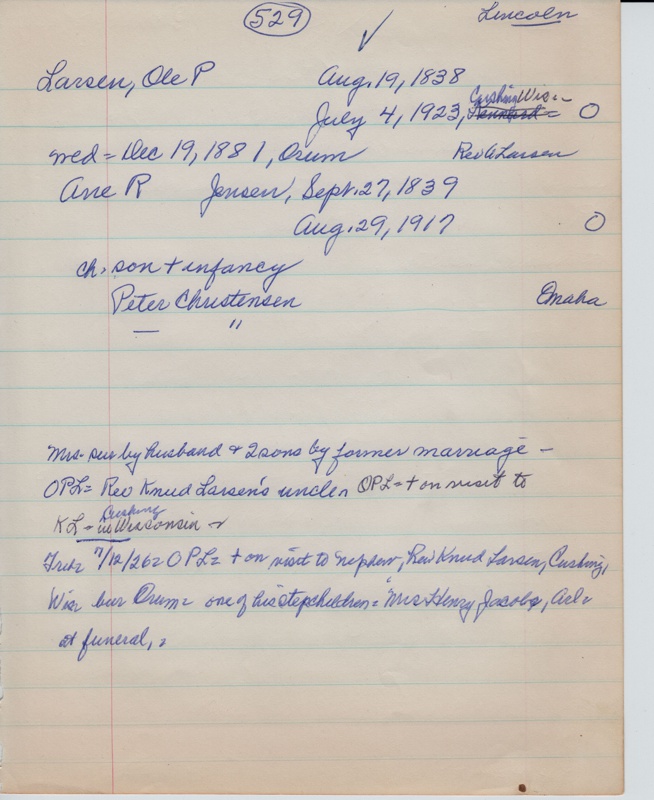 529
Lincoln
Larsen, Ole P Aug. 19, 1838
Cushing Wis -
July 4, 1923, O
wed = Dec 19, 1881, Orum Rev A Larsen
Ane R Jensen, Sept. 27, 1839
Aug. 29, 1917 O
ch. son + infancy
Peter Christensen Omaha
— "
Mrs - sur by husband + 2 sons by former marriage -
OPL = Rev Knud Larsen's uncle OPL = + on visit to
Cushing
KL = in Wisconsin
/12/26 = OPL = + on visit to nephew, Rev Knud Larsen, Cushing,
Wis bur Orum = one of his stepchildren = "Mrs Henry Jacobs, Arl =
at funeral,